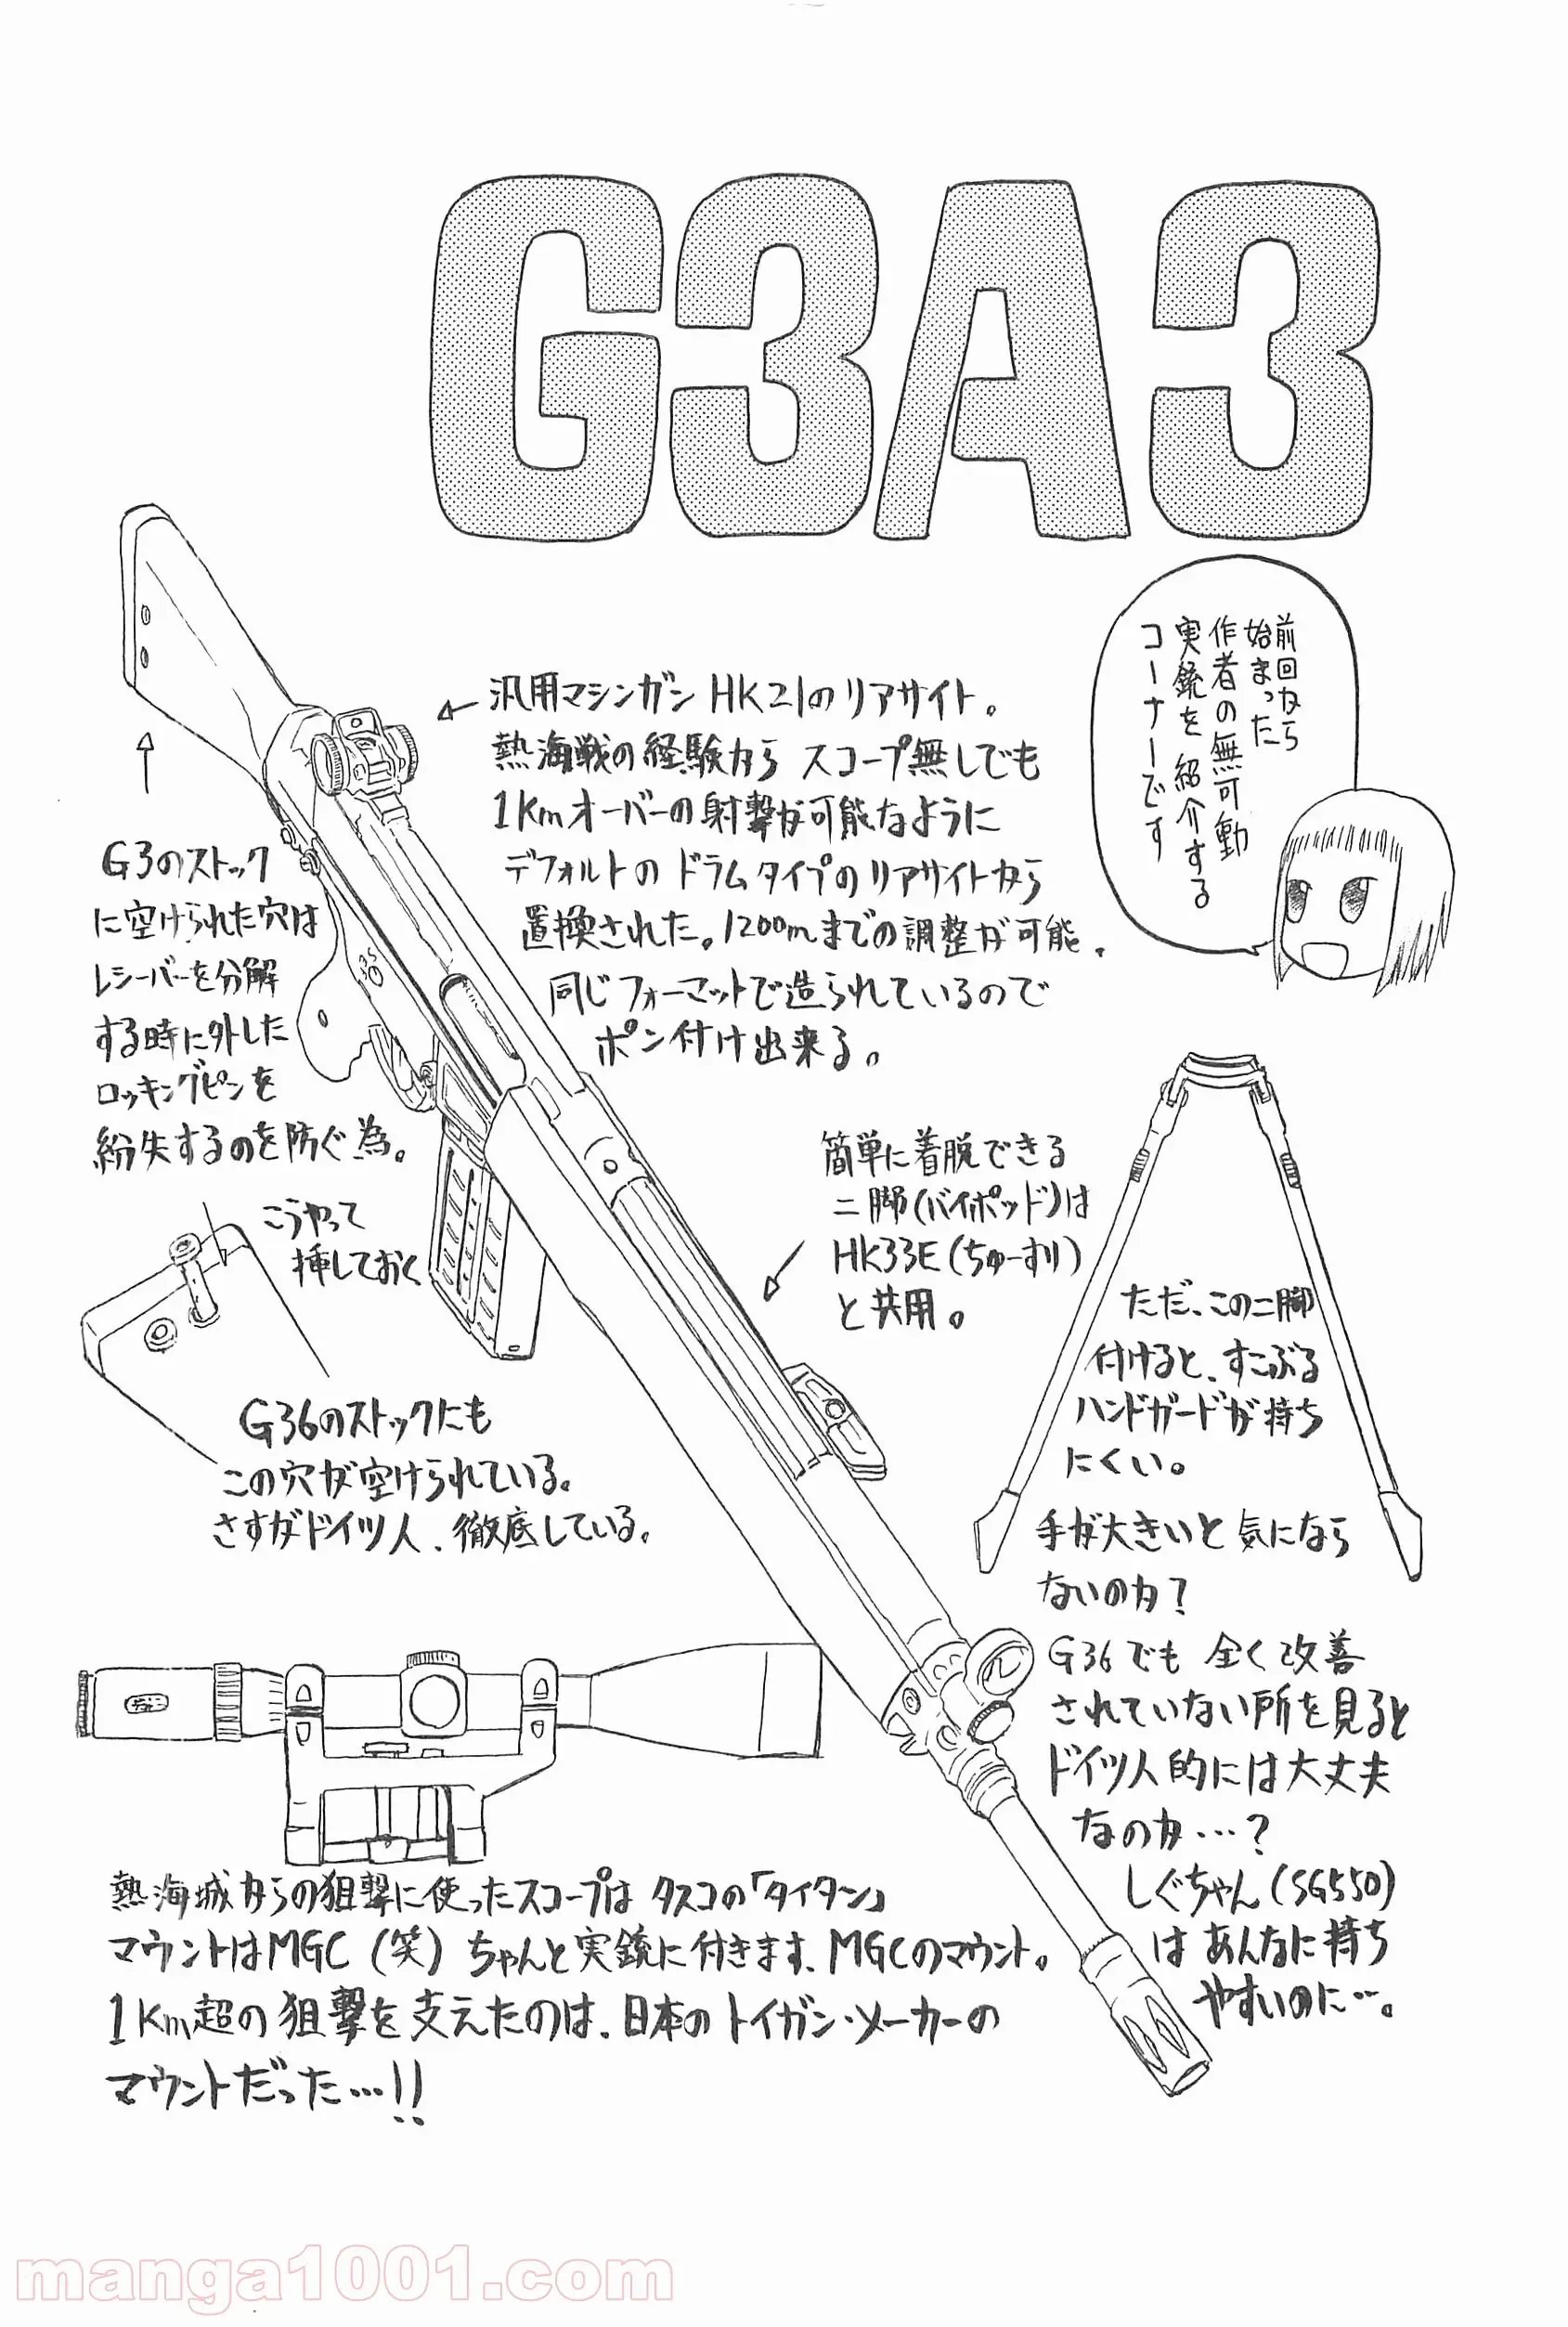 G3A3
前回から
始まった
作者の無可動
実銃を紹介する
コーナーです
汎用マシンガン HK21のリアサイト。
熱海戦の経験から スコープ無しでも
1Kmオーバーの射撃が可能なように
デフォルトの ドラムタイプのリアサイトから
置換された。1200mまでの調整が可能。
同じフォーマットで造られているので
ポン付け出来る。
G3のストック
に空けられた穴は
レシーバーを分解
する時に外した
ロッキングピンを
紛失するのを防ぐ為。
こうやって
挿しておく
G36のストックにも
この穴が空けられている。
さすがドイツ人、徹底している。
簡単に着脱できる
二脚(バイポッド)は
HK33E(ちゅーすり)
と共用。
ただ、この二脚
付けると、すこぶる
ハンドガードが持ち
にくい。
手が大きいと気になら
ないのか?
G36でも 全く改善
されていない所を見ると
ドイツ人的には大丈夫
なのか…?
しぐちゃん(SG550)
は あんなに持ち
やすいのに…。
熱海城からの狙撃に使ったスコープは タスコの「タイタン」
マウントはMGC(笑) ちゃんと実銃に付きます、MGCのマウント。
1Km超の狙撃を支えたのは、日本のトイガン・メーカーの
マウントだった…!!
manga1001.com